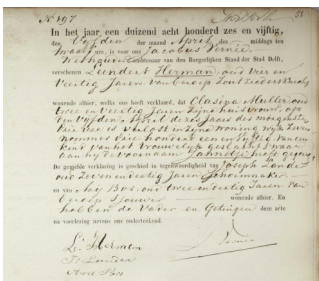 No 197
51
In het jaar, een duizend acht honderd zes en vijftig,
den Vijfden der maand April des middags ten
twaalf ure, is voor ons Jacobus
Wethouder Ambtenaar van den Burgerlijken Stand der Stad Delft,
verschenen Leendert Herman oud Vier en
Veertig Jaren van beroep Zoutzieders knecht
wonende alhier, welke ons heeft verklaard, dat Clasijna Muller oud
Twee en Veertig Jaren Zijne huisvrouw, op
den Vijfden April dezes Jaars des morgens te
Vier ure is Verlost in Zijne Woning wijk Zeven
nommer Vier honderd een en van een
kind van het Vrouwelijk geslacht waar
aan hij de voornaam Jannetje heeft gegeven
De gezegde verklaring is geschied in tegenwoordigheid van Joseph
oud Zeven en Veertig Jaren Schoenmaker
en van Arij Bos oud twee en Veertig Jaren van
beroep Sjouwer wonende alhier. En
hebben de Vader en Getuigen deze acte
na voorlezing nevens ons onderteekend.
L: Herman